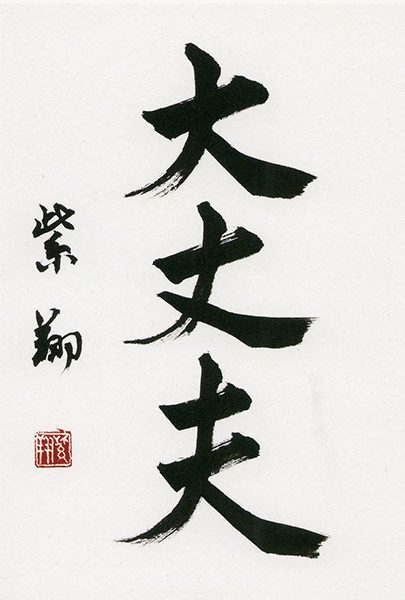 大丈夫
紫翔